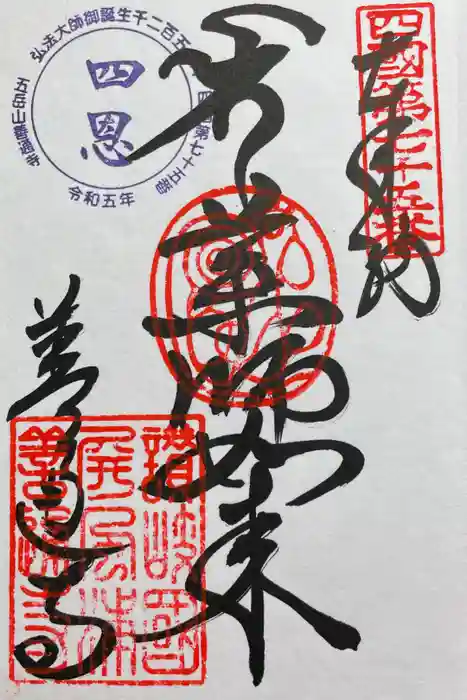 四國第七十五番
奉拝
薬師如来
善通寺
弘法大師御誕生千二百五
第七十五番
五岳山善通寺
令和五年
四恩
讃岐國
屏風浦
善通寺